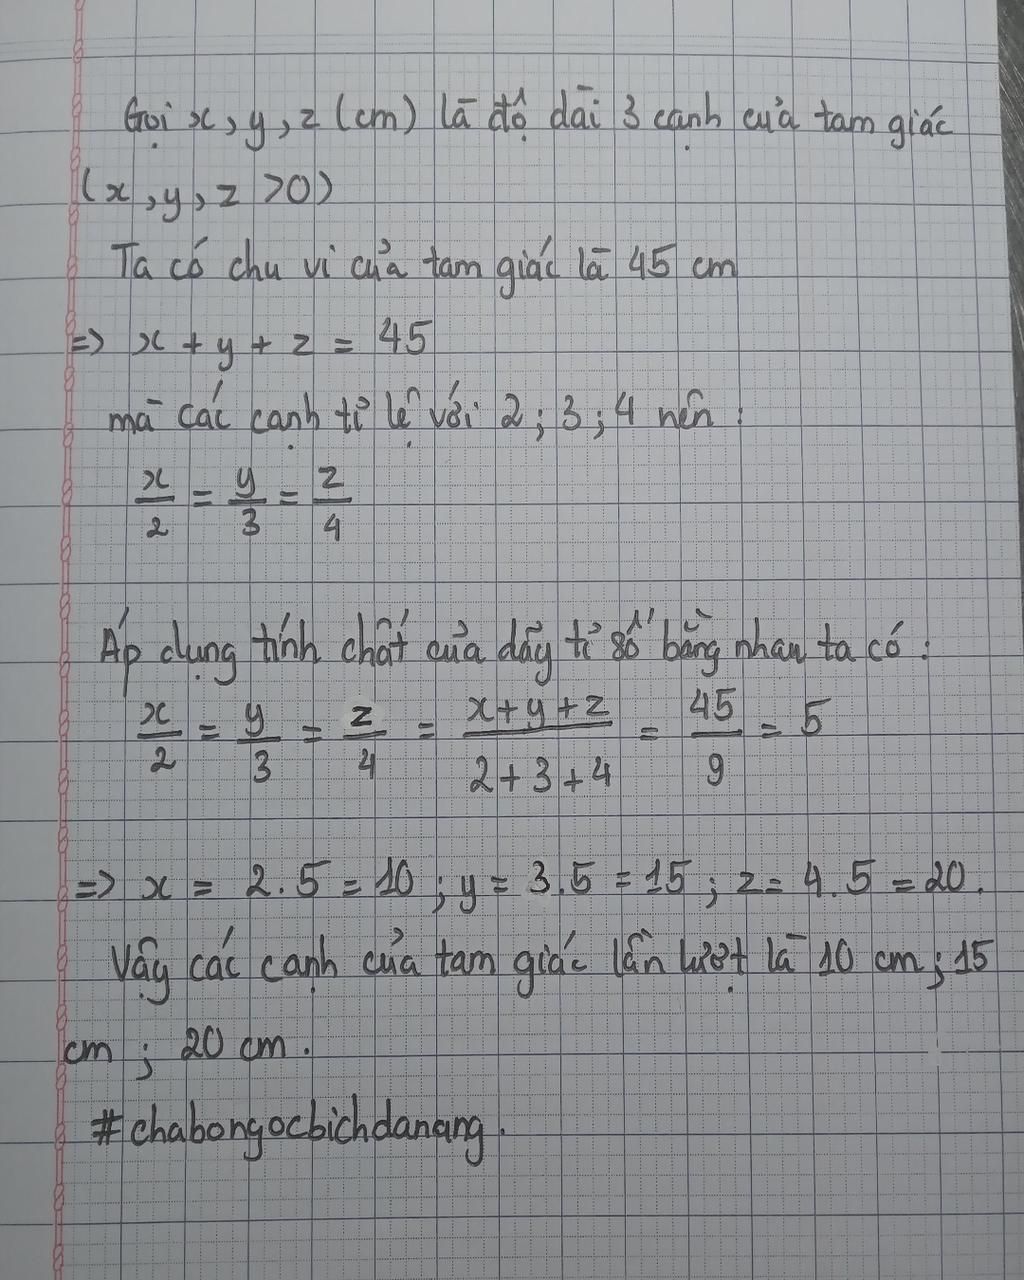 Gọi x, y, z (cm) là độ dài 3 cạnh của tam giác
(x, y, z >0)
Ta có chu vi của tam giác là 45 cm
=> x + y + z = 45
mà các cạnh tỉ lệ với 2 ; 3 ; 4 nên :
x/2 = y/3 = z/4
Áp dụng tính chất của dãy tỉ số bằng nhau ta có :
x/2 = y/3 = z/4 = (x+y+z)/(2+3+4) = 45/9 = 5
=> x = 2.5 = 10 ; y = 3.5 = 15 ; z = 4.5 = 20.
Vậy các cạnh của tam giác lần lượt là 10 cm ; 15
cm ; 20 cm .
#chabongocbichdanang .